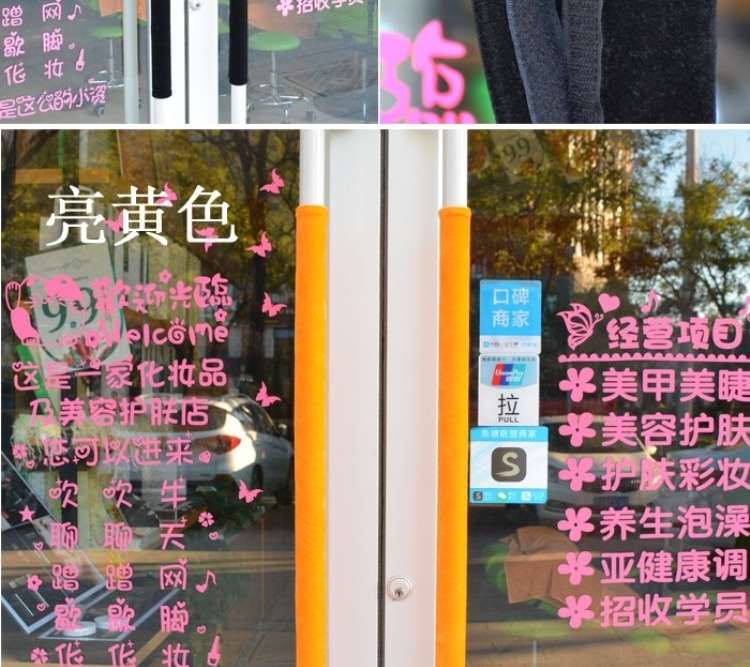 蹭网
歇脚
化妆
是这么的小资
招收学员
临
亮黄色
9.9
9.9
欢迎光临
welcome
这是一家化妆品
及美容护肤店
您可以进来
吹吹牛
聊聊天
蹭蹭网
歇歇脚
化化妆
口碑
商家
UnionPay
拉
PULL
S
经营项目
美甲美睫
美容护肤
护肤彩妆
养生泡澡
亚健康调
招收学员